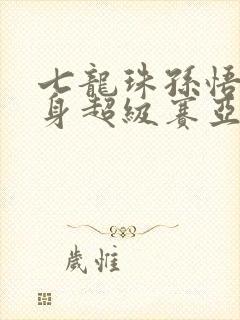 七龍珠孫悟
身超級賽亞
歲惟